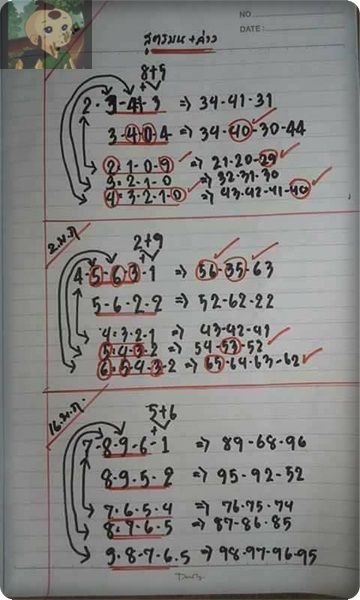 NO.
DATE :
สูตรบน+ล่าง
8+5
+
2-3-4-3 => 34-41-31
3-4-0-4 => 34-40-30-44
2-1-0-9 => 21-20-29
3=2-1-0 => 32-31-30
4=3-2-1-0 => 43-42-41-40
2.ม.ค
2+9
+
4-5-6-3-1 => 56-35-63
5-6-2-2 => 52-62-22
4=3-2-1 => 43-42-41
5=4-3-2 => 54-53-52
6=5-4-3-2 => 65-64-63-62
16.ม.ค.
5+6
+
7-8-9-6-1 => 89-68-96
8-9-5-2 => 95-92-52
7-6-5-4 => 76-75-74
8-7-6-5 => 87-86-85
9-8-7-6-5 => 98-97-96-95